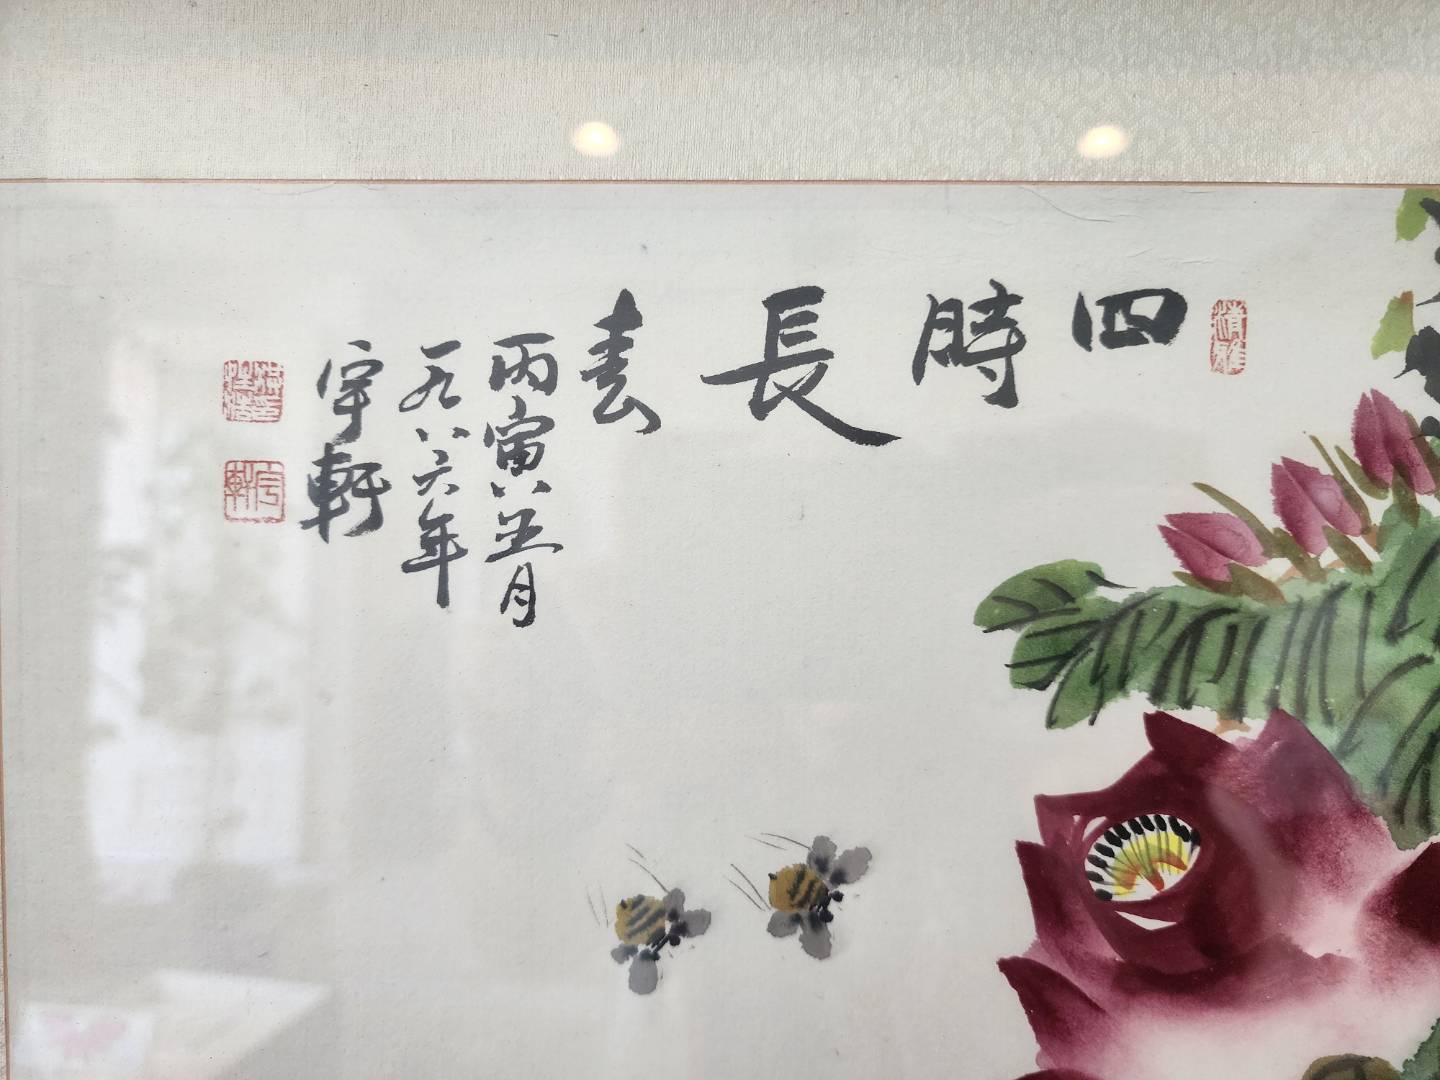 四時長春
丙寅八五月
一九八六年
宇軒